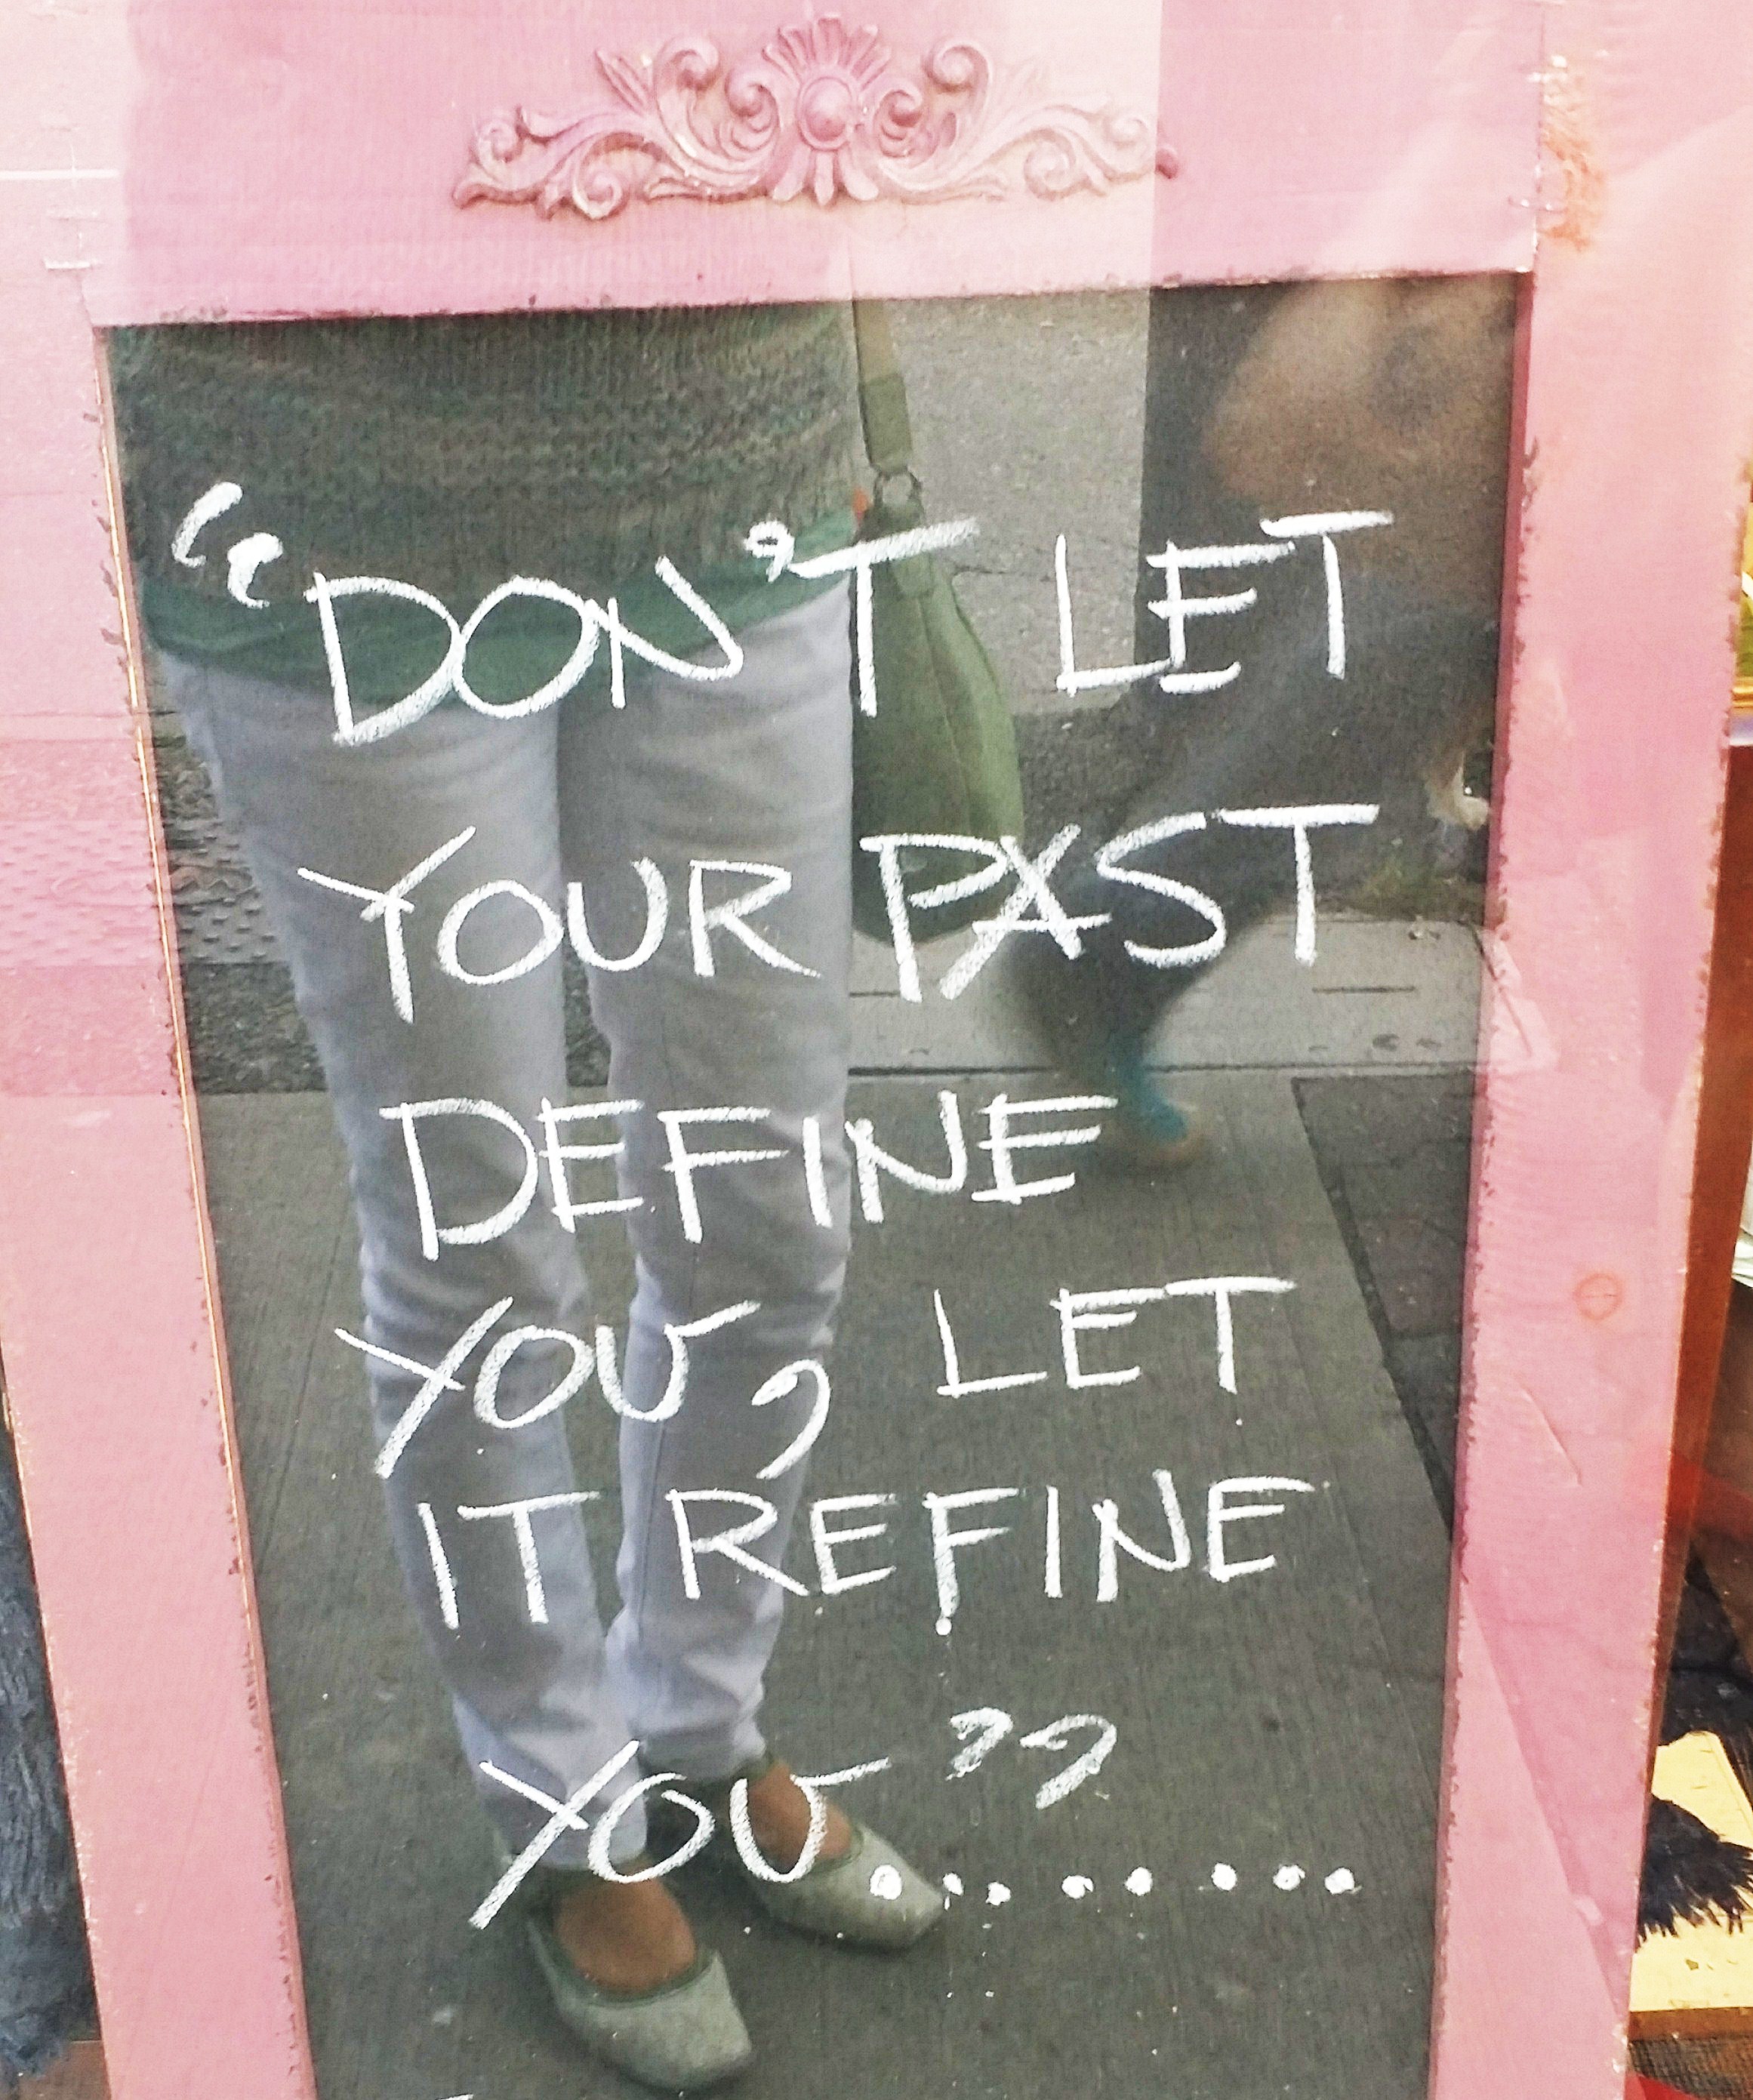 “DON’T LET
YOUR PAST
DEFINE
YOU, LET
IT REFINE
YOU”........